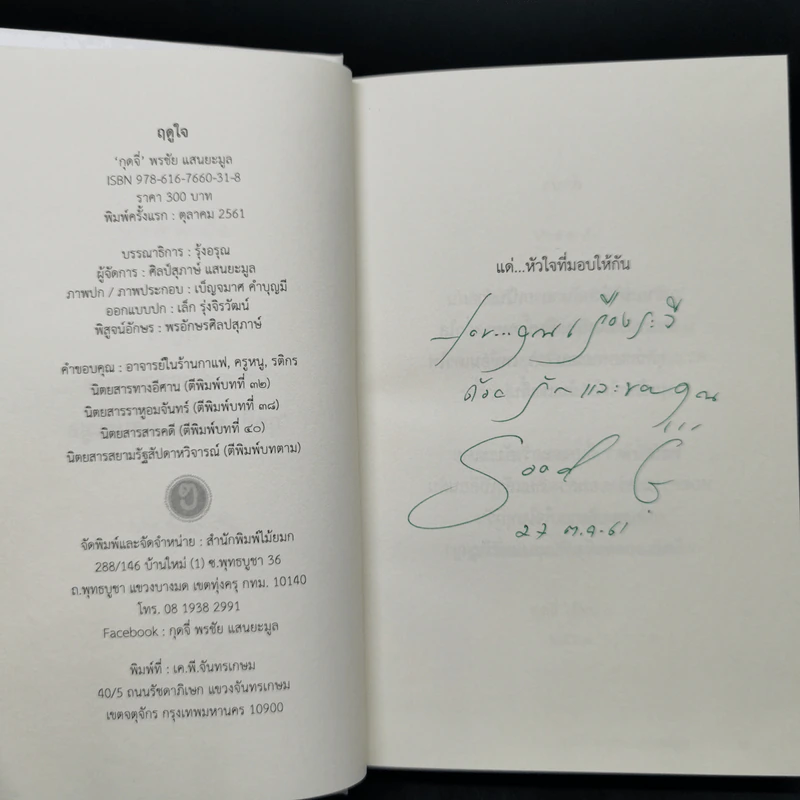 ฤดูใจ
'กุดจี่' พรชัย แสนยะมูล
ISBN 978-616-7660-31-8
ราคา 300 บาท
พิมพ์ครั้งแรก : ตุลาคม 2561
บรรณาธิการ : รุ้งอรุณ
ผู้จัดการ : ศิลป์สุภาษ์ แสนยะมูล
ภาพปก / ภาพประกอบ : เบ็ญจมาศ คำบุญมี
ออกแบบปก : เล็ก รุ่งจิรวัฒน์
พิสูจน์อักษร : พรอักษรศิลปสุภาษ์
คำขอบคุณ : อาจารย์ในร้านกาแฟ, ครูหนู, รติกร
นิตยสารทางอีศาน (ตีพิมพ์บทที่ ๓๒)
นิตยสารราหูอมจันทร์ (ตีพิมพ์บทที่ ๓๘)
นิตยสารสารคดี (ตีพิมพ์บทที่ ๔๐)
นิตยสารสยามรัฐสัปดาหวิจารณ์ (ตีพิมพ์บทตาม)
จัดพิมพ์และจัดจำหน่าย : สำนักพิมพ์ไม้ยมก
288/146 บ้านใหม่ (1) ซ.พุทธบูชา 36
ถ.พุทธบูชา แขวงบางมด เขตทุ่งครุ กทม. 10140
โทร. 08 1938 2991
Facebook : กุดจี่ พรชัย แสนยะมูล
พิมพ์ที่ : เค.พี.จันทรเกษม
40/5 ถนนรัชดาภิเษก แขวงจันทรเกษม
เขตจตุจักร กรุงเทพมหานคร 10900
แด่...หัวใจที่มอบให้กัน
คุณเรืองระวี
ด้วยรักและขอบคุณ
27 ต.ค. 61